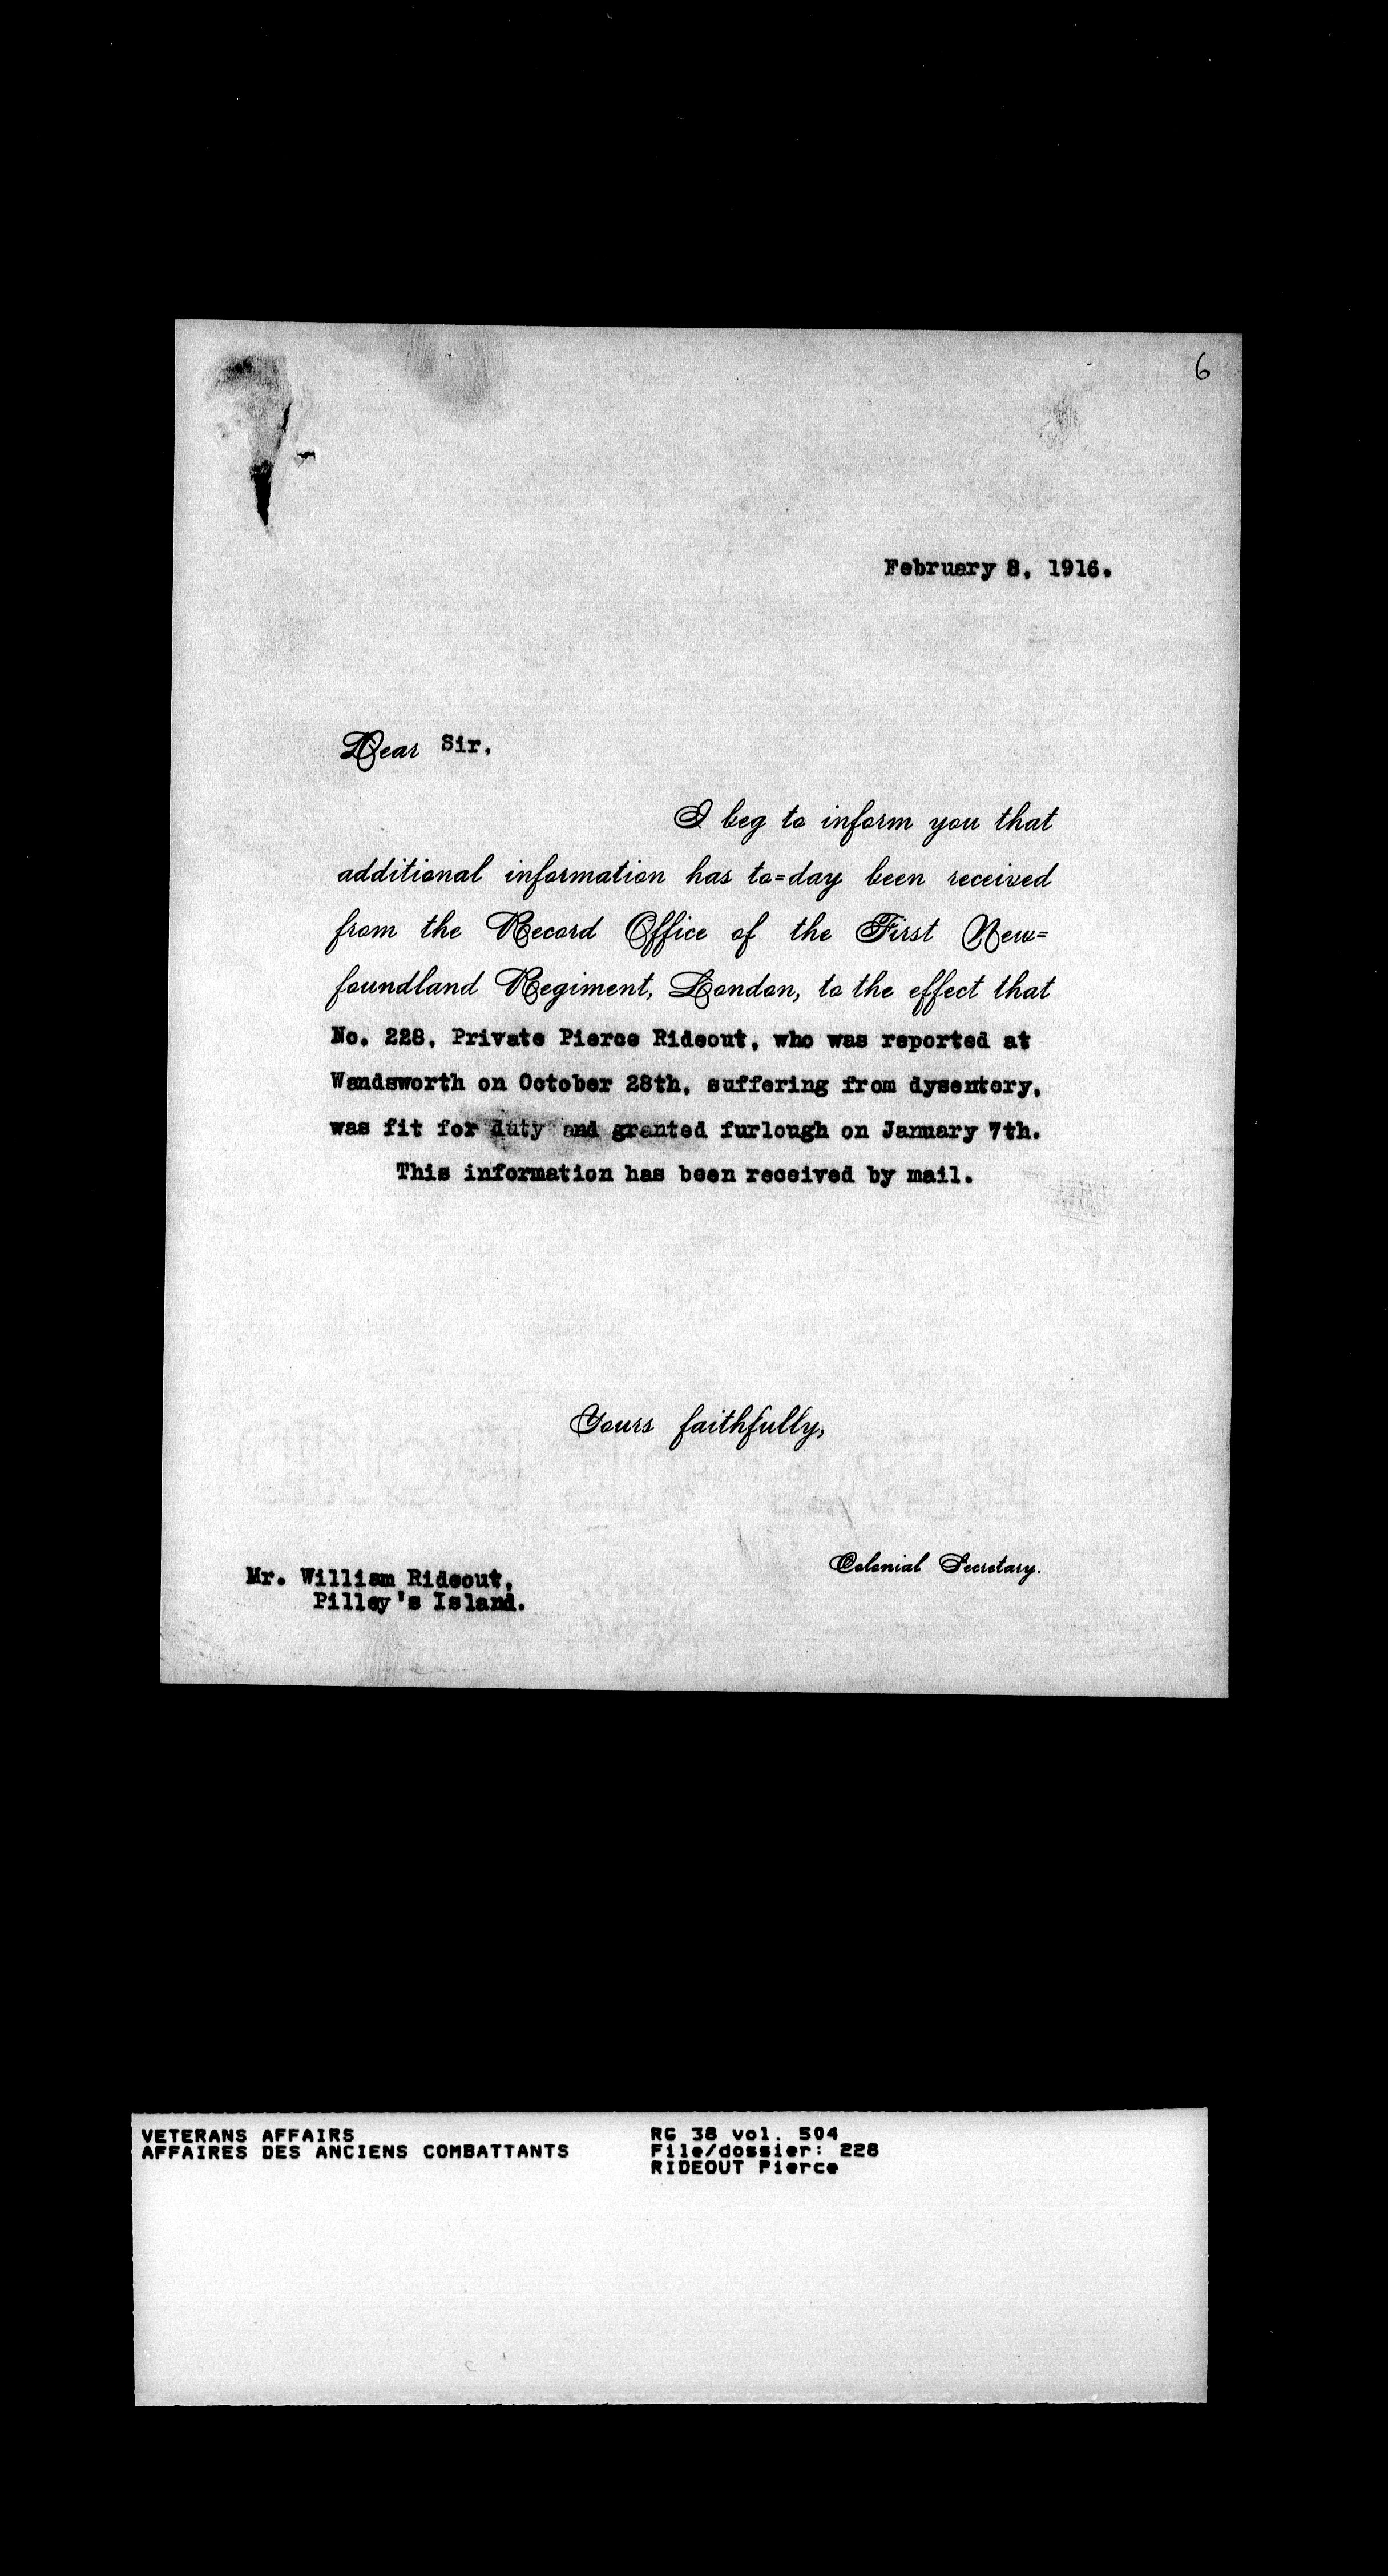 6
February 8, 1916.
Dear Sir,
I beg to inform you that
additional information has to=day been received
from the Record Office of the First New=
foundland Regiment, London, to the effect that
No. 228, Private Pierce Rideout, who was reported at
Wandsworth on October 28th, suffering from dysentery,
was fit for duty and granted furlough on January 7th.
This information has been received by mail.
Yours faithfully,
Colonial Secretary.
Mr. William Rideout,
Pilley's Island.
VETERANS AFFAIRS
AFFAIRES DES ANCIENS COMBATTANTS
RG 38 vol. 504
File/dossier: 228
RIDEOUT Pierce